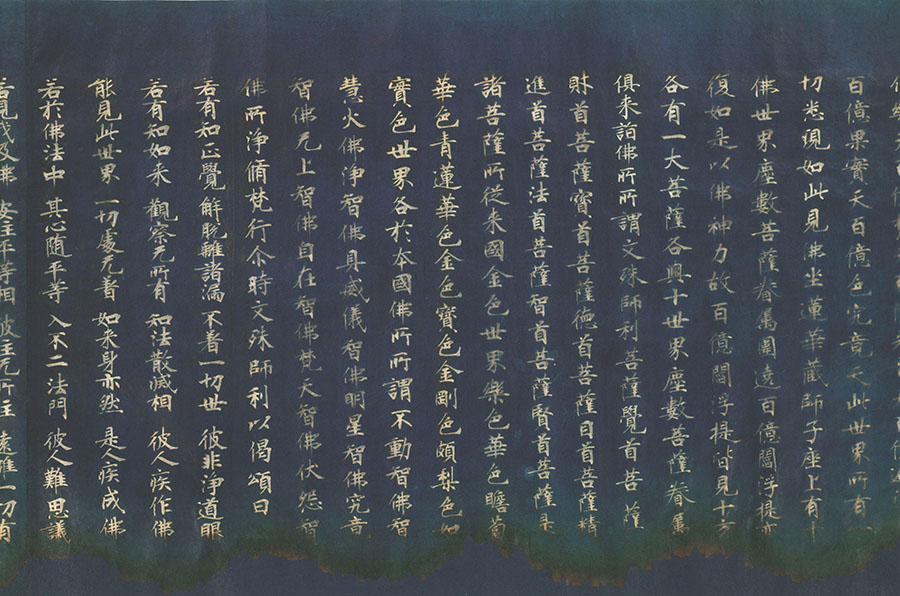 百億果實天百億色究竟天此世界所有一
切悉現如此見佛坐蓮華藏師子座上有十
佛世界塵數菩薩眷屬圍遶百億閻浮提亦
復如是以佛神力故百億閻浮提皆見十方
各有一大菩薩各與十世界塵數菩薩眷屬
俱来詣佛所所謂文殊師利菩薩覺首菩薩
財首菩薩寶首菩薩德首菩薩目首菩薩精
進首菩薩法首菩薩智首菩薩賢首菩薩是
諸菩薩所從来國金色世界樂色華色瞻蔔
華色青蓮華色金色寶色金剛色頗梨色如
實色世界各於本國佛所所謂不動智佛智
慧火佛淨智佛具威儀智佛明星智佛究竟
智佛无上智佛自在智佛梵天智佛伏怨智
佛所淨脩梵行尒時文殊師利以偈頌曰
若有知正覺 解脫離諸漏 不著一切世 彼非淨道眼
若有知如来 觀察无所有 知法散滅相 彼人疾作佛
能見此世界 一切處无著 如来身亦然 是人疾成佛
若於佛法中 其心随平等 入不二法門 彼人難思議
若見我及佛 安住平等相 彼住无所住 遠離一切有